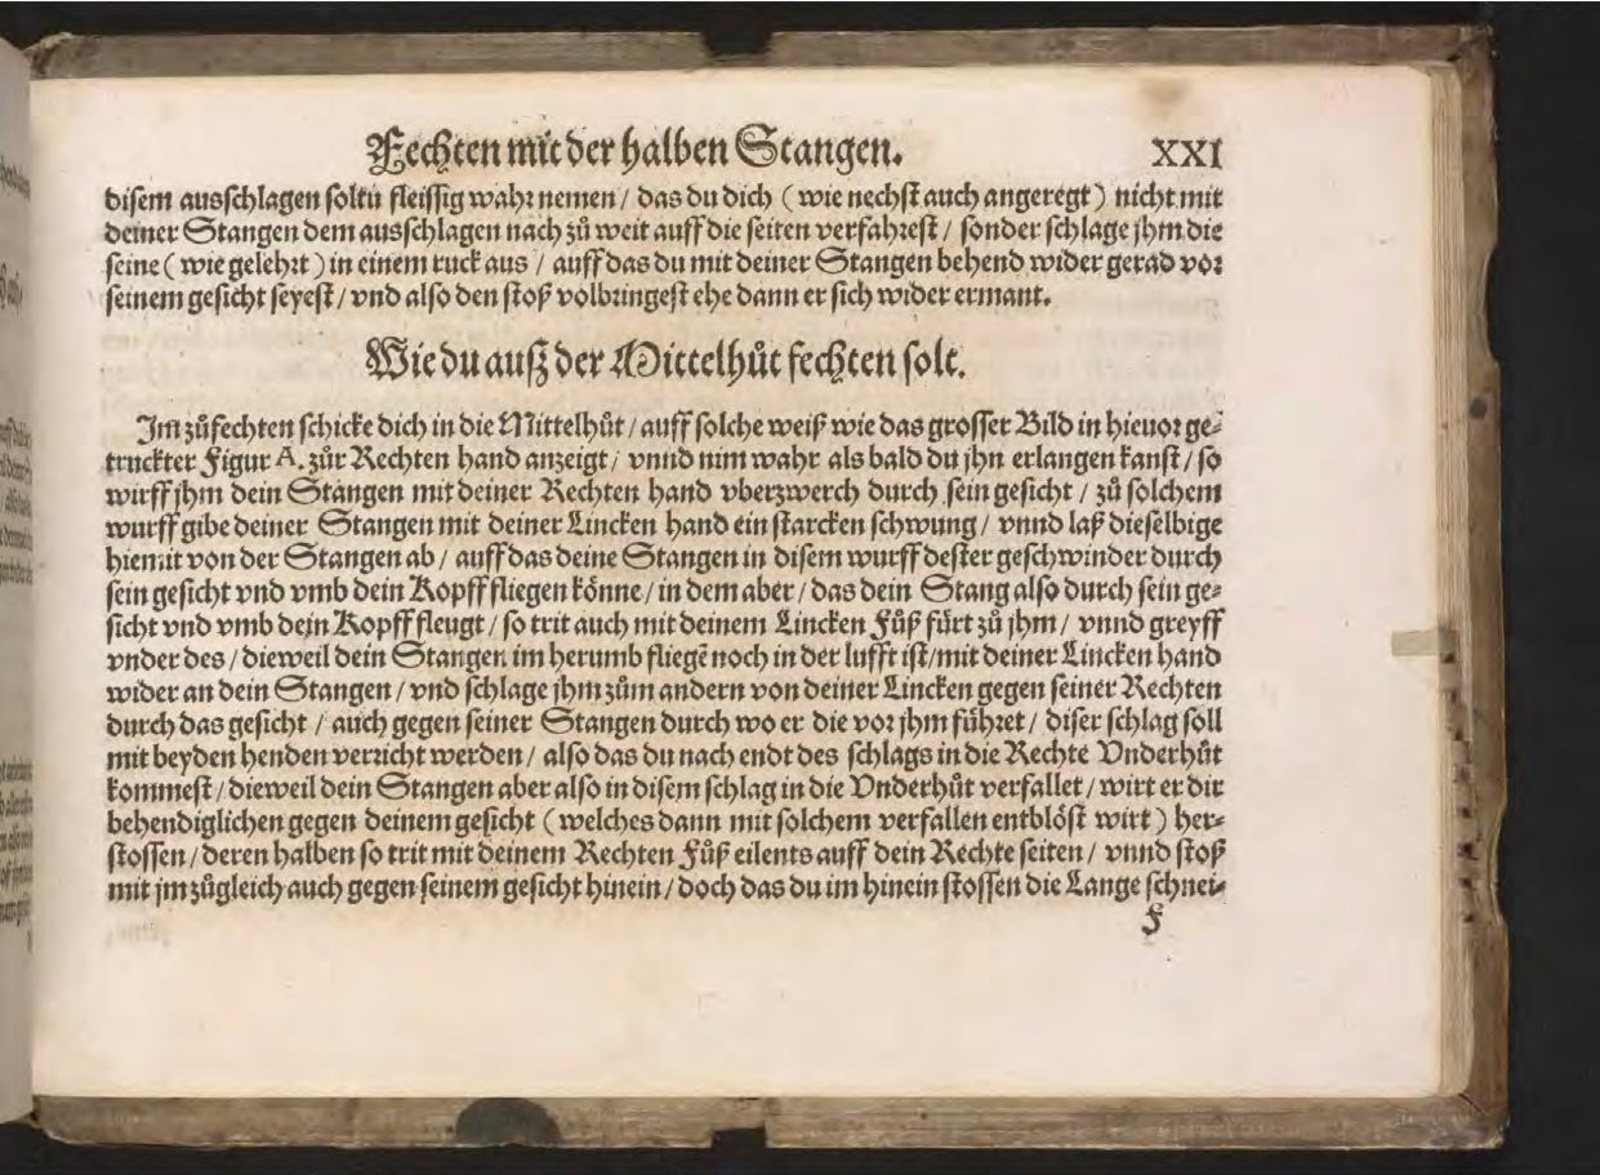 Fechten mit der halben Stangen. XXI
disem ausschlagen soltu fleissig wahr nemen / das du dich ( wie nechst auch angeregt ) nicht mit
deiner Stangen dem ausschlagen nach zů weit auff die seiten verfahrest / sonder schlage jhm die
seine ( wie gelehrt ) in einem ruck aus / auff das du mit deiner Stangen behend wider gerad vor
seinem gesicht seyest / vnd also den stoß volbringest ehe dann er sich wider ermant.
Wie du auß der Mittelhůt fechten solt.
Im zůfechten schicke dich in die Mittelhůt / auff solche weiß wie das grosser Bild in hieuor ge-
truckter Figur A. zůr Rechten hand anzeigt / vnnd nim wahr als bald du jhn erlangen kanst / so
wirff jhm dein Stangen mit deiner Rechten hand vberzwerch durch sein gesicht / zů solchem
wurff gibe deiner Stangen mit deiner Lincken hand ein starcken schwung / vnnd laß dieselbige
hiemit von der Stangen ab / auff das deine Stangen in disem wurff dester geschwinder durch
sein gesicht vnd vmb dein Kopff fliegen könne / in dem aber / das dein Stang also durch sein ge-
sicht vnd vmb dein Kopff fleugt / so trit auch mit deinem Lincken Fůß fürt zů jhm / vnnd greyff
vnder des / dieweil dein Stangen im herumb fliegē noch in der lufft ist / mit deiner Lincken hand
wider an dein Stangen / vnd schlage jhm zům andern von deiner Lincken gegen seiner Rechten
durch das gesicht / auch gegen seiner Stangen durch wo er die vor jhm führet / diser schlag soll
mit beyden henden verricht werden / also das du nach endt des schlags in die Rechte Vnderhůt
kommest / dieweil dein Stangen aber also in disem schlag in die Vnderhůt verfallet / wirt er dir
behendiglichen gegen deinem gesicht ( welches dann mit solchem verfallen entblöst wirt ) her-
stossen / deren halben so trit mit deinem Rechten Fůß eilents auff dein Rechte seiten / vnnd stoß
mit jm zůgleich auch gegen seinem gesicht hinein / doch das du im hinein stossen die Lange schnei-
F